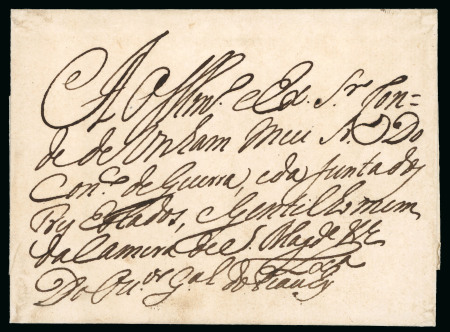 Ao Illmo. e Ex. Sr. Con=
de de Unham meu Sr. Do
Cons.º de Guerra, e da Junta dos
Tres Estados, Gentilhomem
da Camera de S. Magde. &c
Do Ouor. Gal do